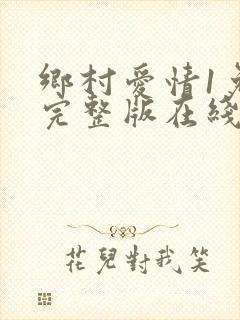 鄉村愛情1免
完整版在綫
花兒對我笑